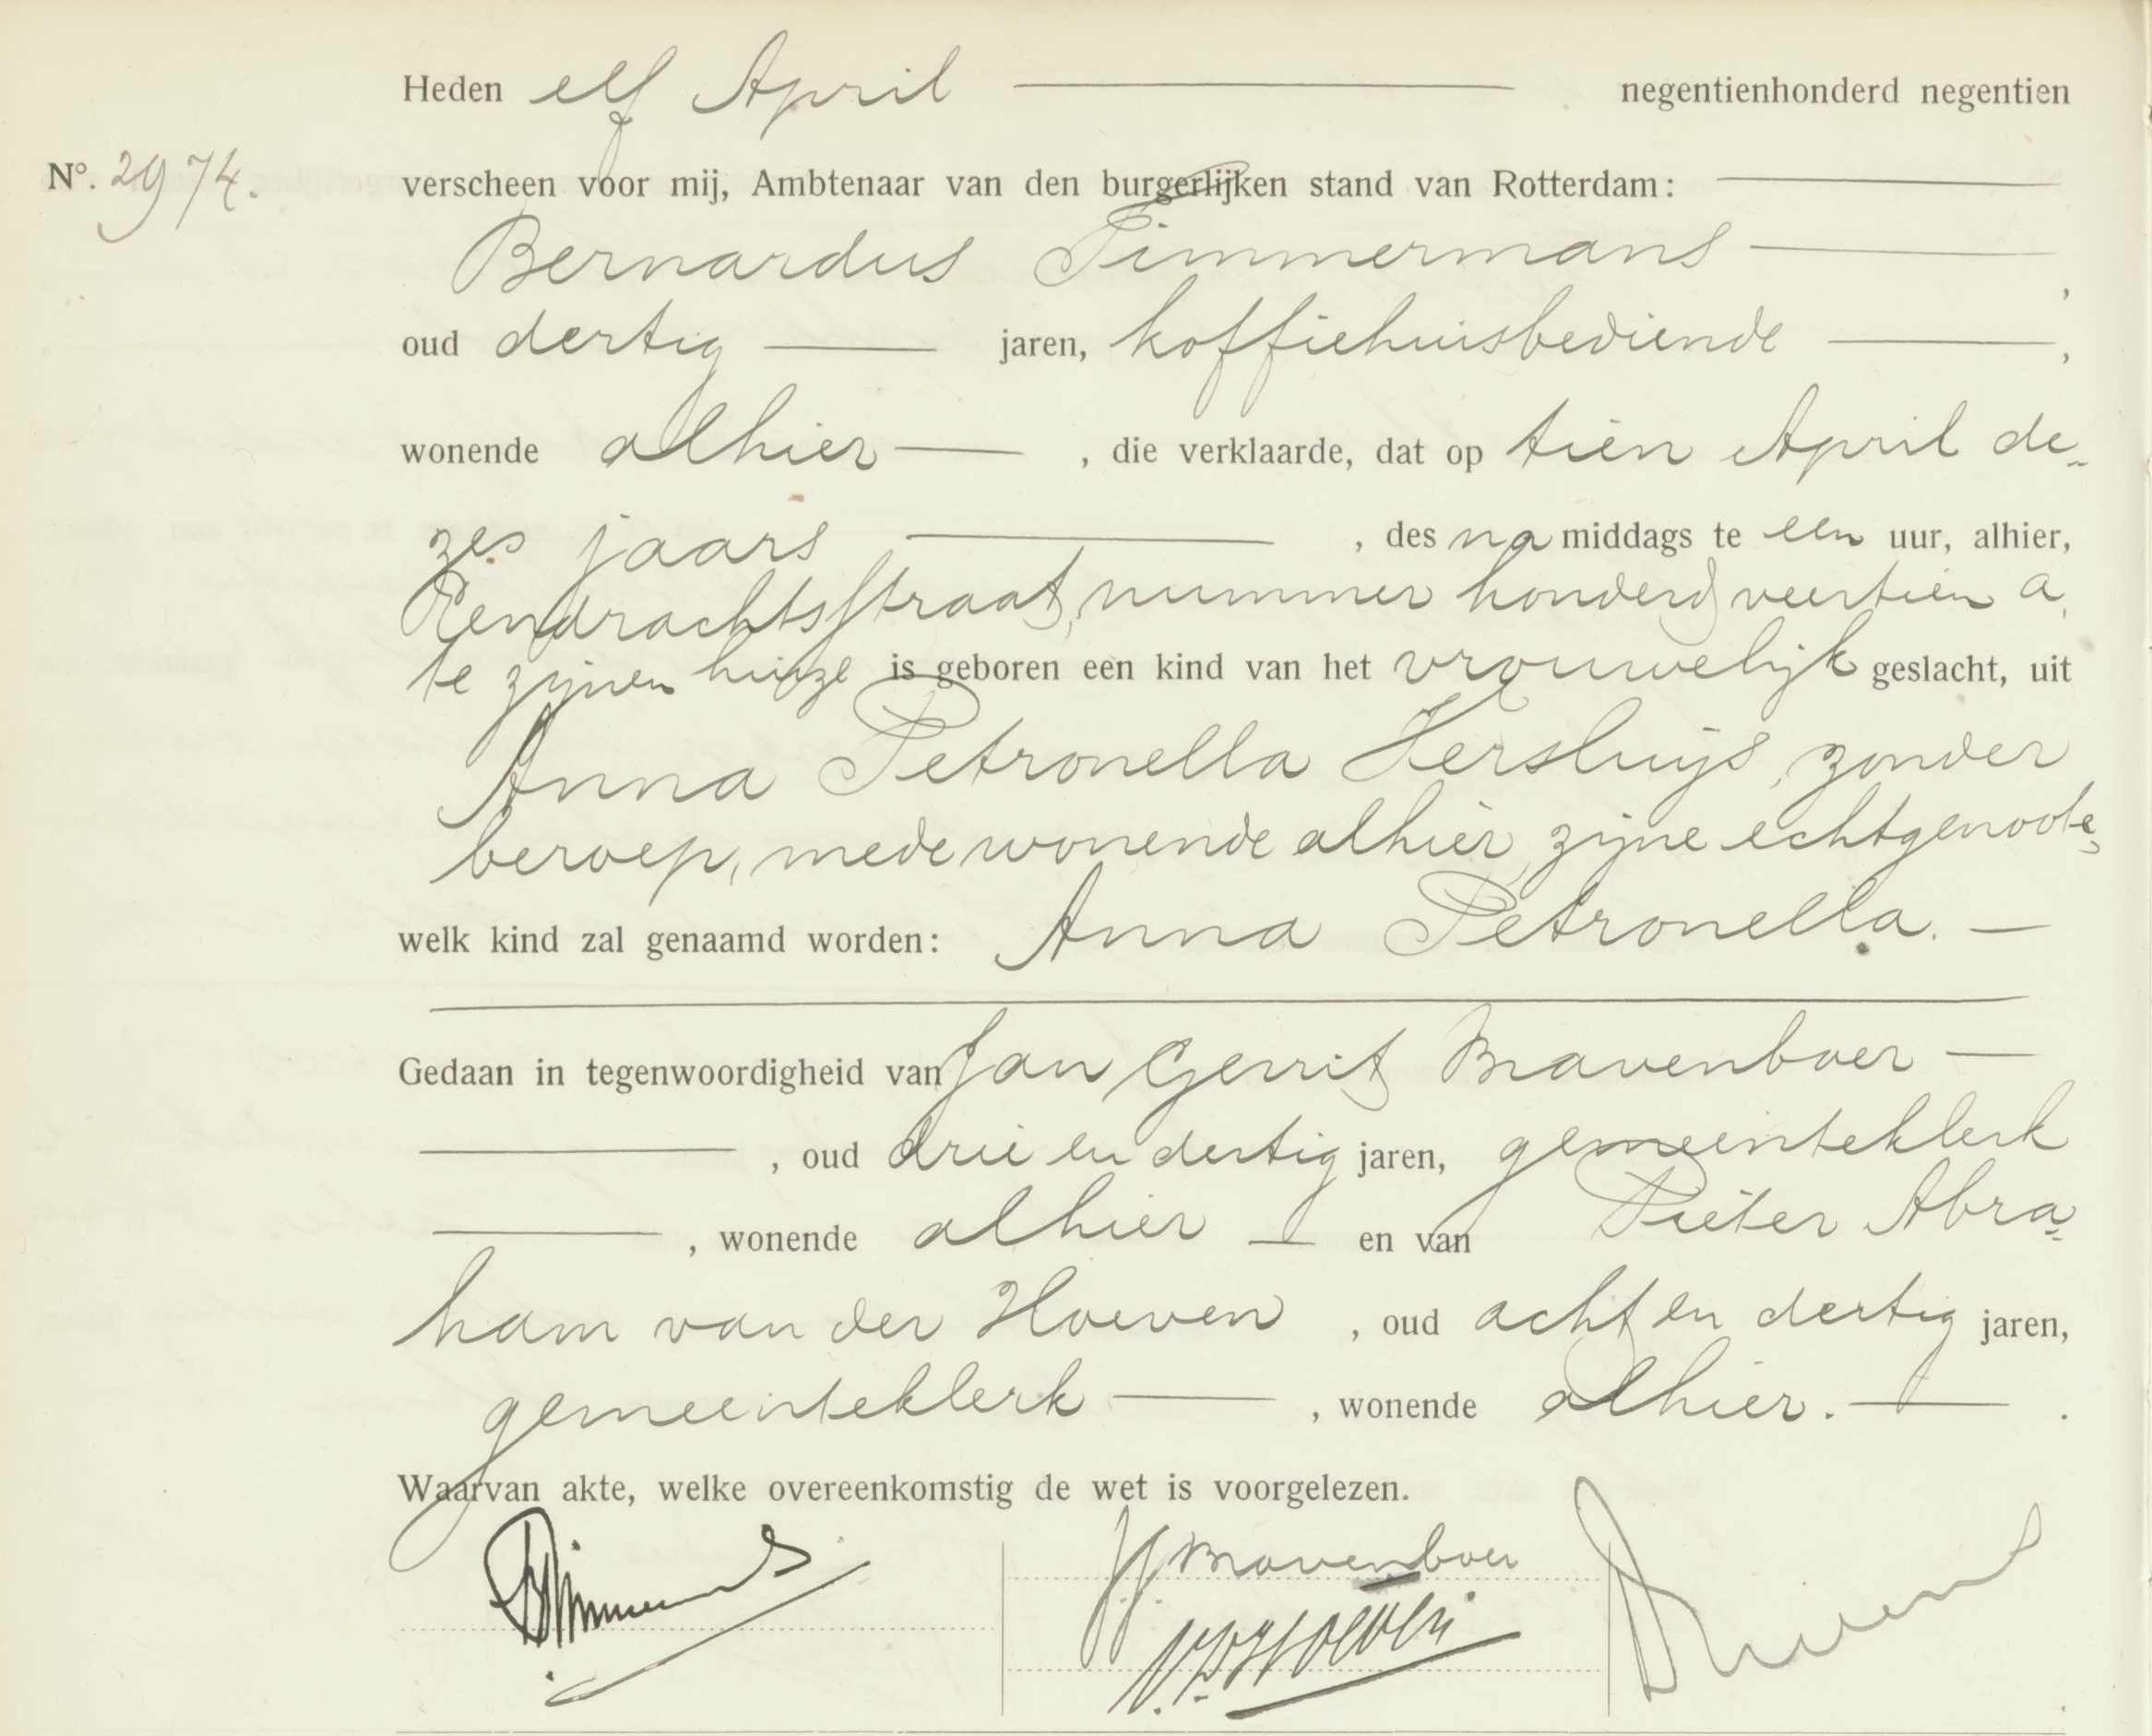 Heden elf April negentienhonderd negentien
Nº. 2974. verscheen voor mij, Ambtenaar van den burgerlijken stand van Rotterdam:
Bernardus Timmermans,
oud dertig jaren, koffiehuisbediende,
wonende alhier, die verklaarde, dat op tien April de-
zes jaars, des na middags te een uur, alhier,
Eendrachtsstraat, nummer honderd veertien a,
te zijnen huize is geboren een kind van het vrouwelijk geslacht, uit
Anna Petronella Versluijs, zonder
beroep, mede wonende alhier, zijne echtgenoote,
welk kind zal genaamd worden: Anna Petronella.
Gedaan in tegenwoordigheid van Jan Gerrit Bravenboer
, oud drie en dertig jaren, gemeenteklerk
, wonende alhier en van Pieter Abra-
ham van der Hoeven, oud acht en dertig jaren,
gemeenteklerk, wonende alhier.
Waarvan akte, welke overeenkomstig de wet is voorgelezen.
BTimmermans
JG. Bravenboer
vdHoeven